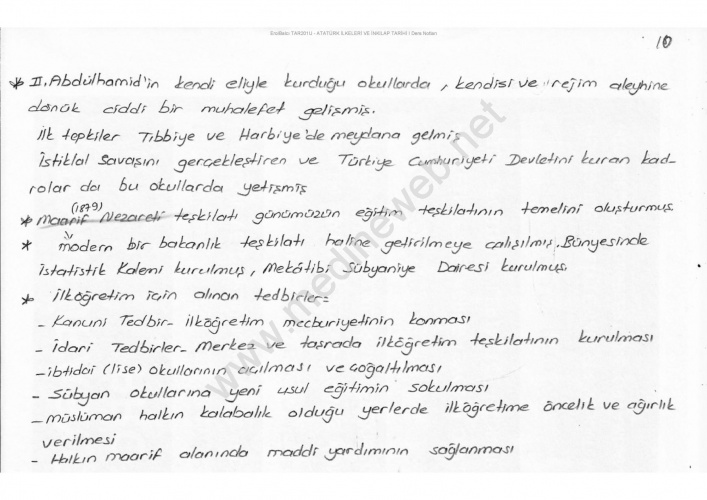 EncBabu TAR201U - ATATÜRK İLKELERİ VE İNKILAP TARİHİ I Ders Notları
10
* II. Abdülhamid'in kendi eliyle kurduğu okullarda, kendisi ve rejim aleyhine
dönük ciddi bir muhalefet gelişmiş.
İlk tepkiler Tıbbiye ve Harbiye'de meydana gelmiş
İstiklal Savaşını gerçekleştiren ve Türkiye Cumhuriyeti Devletini kuran kad-
rolar da bu okullarda yetişmiş
(1879)
* Maarif Nezareti teşkilatı günümüzün eğitim teşkilatının temelini oluşturmuş
* modern bir bakanlık teşkilatı haline getirilmeye çalışılmış. Bünyesinde
İstatistik Kalemi kurulmuş, Mekâtibi Sübyaniye Dairesi kurulmuş.
* İlköğretim için alınan tedbirler=
- Kanuni Tedbir- ilköğretim mecburiyetinin konması
- İdari Tedbirler- Merkez ve taşrada ilköğretim teşkilatının kurulması
- ibtidai (lise) okullarının açılması ve çoğaltılması
- Sübyan okullarına yeni usul eğitimin sokulması
- müslüman halkın kalabalık olduğu yerlerde ilköğretime öncelik ve ağırlık
verilmesi
- Halkın maarif alanında maddi yardımının sağlanması
www.medineweb.net